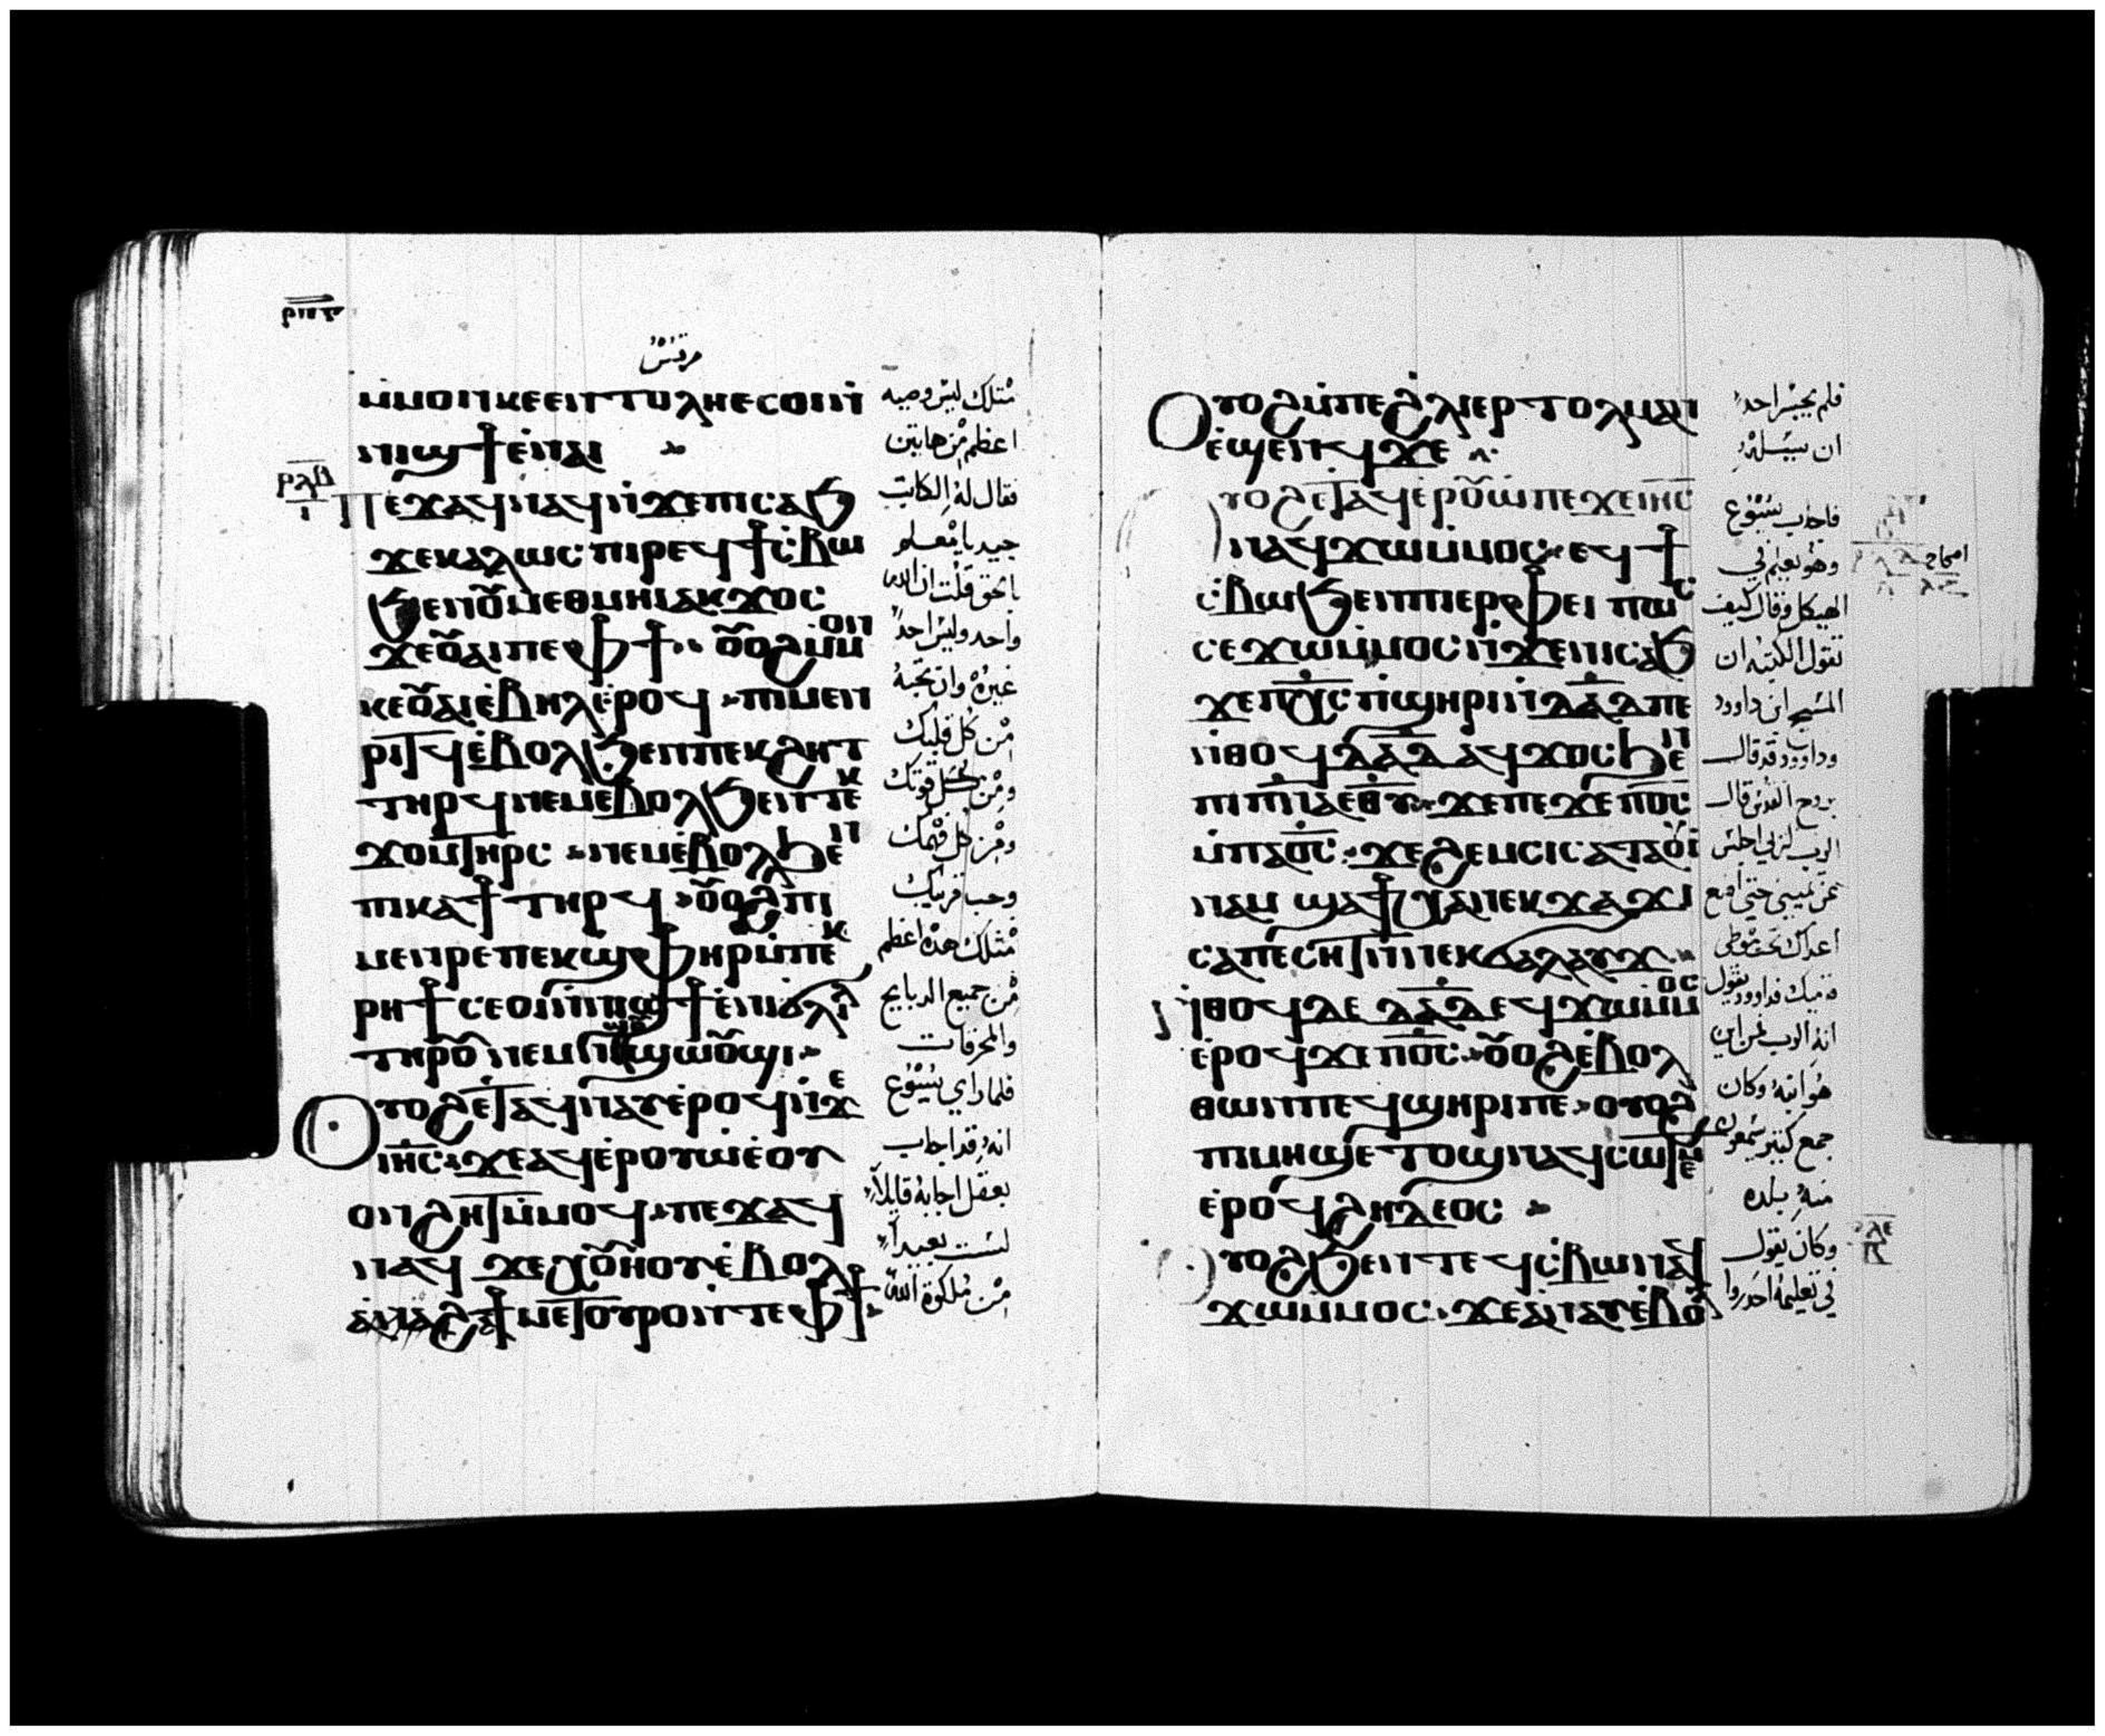 مرقس
ⲙ̀ⲙⲟⲛ ⲕⲉⲉⲛⲧⲟⲗⲏ ⲉⲥⲟⲓ ⲛ̀
ⲛⲓϣϯ ⲉ̀ⲛⲁⲓ
ⲡⲉϫⲁϥ ⲛⲁϥ ⲛ̀ϫⲉ ⲡⲓⲥⲁϧ
ϫⲉ ⲕⲁⲗⲱⲥ ⲡⲓⲣⲉϥϯⲥⲃⲱ
ϧⲉⲛ ⲟⲩⲙⲉⲑⲙⲏⲓ ⲁⲕϫⲟⲥ
ϫⲉ ⲟⲩⲁⲓ ⲡⲉ ⲫϯ ⲟⲩⲟϩ ⲙ̀ⲙⲟⲛ
ⲕⲉⲟⲩⲁⲓ ⲉ̀ⲃⲏⲗ ⲉ̀ⲣⲟϥ ⲡⲓⲙⲉⲛ
ⲣⲓⲧϥ ⲉ̀ⲃⲟⲗ ϧⲉⲛ ⲡⲉⲕϩⲏⲧ
ⲧⲏⲣϥ ⲛⲉⲙ ⲉ̀ⲃⲟⲗ ϧⲉⲛ ⲧⲉⲕ
ϫⲟⲙ ⲧⲏⲣⲥ ⲛⲉⲙ ⲉ̀ⲃⲟⲗ ϧⲉⲛ
ⲡⲓⲕⲁϯ ⲧⲏⲣϥ ⲟⲩⲟϩ ⲡⲓ
ⲙⲉⲛⲣⲉ ⲡⲉⲕϣⲫⲏⲣ ⲙ̀ⲡⲉⲕ
ⲣⲏϯ ⲥⲉⲟⲓ ⲛ̀ⲛⲓϣϯ ⲉ̀ⲛⲓϭⲗⲓⲗ
ⲧⲏⲣⲟⲩ ⲛⲉⲙ ⲛⲓϣⲟⲩϣⲱⲟⲩϣⲓ
ⲟⲩⲟϩ ⲉ̀ⲧⲁϥⲛⲁⲩ ⲉ̀ⲣⲟϥ ⲛ̀ϫⲉ
ⲓⲏⲥ ϫⲉ ⲁϥⲉ̀ⲣⲟⲩⲱ̀ ⲉ̀ⲟⲩ
ⲟⲛ ϩⲏⲧ ⲙ̀ⲙⲟϥ ⲡⲉϫⲁϥ
ⲛⲁϥ ϫⲉ ⲭⲟⲩⲏⲟⲩ ⲉ̀ⲃⲟⲗ
ⲁⲛ ϩⲁ ϯⲙⲉⲧⲟⲩⲣⲟ ⲛⲧⲉ ⲫϯ
مثلك ليس وصيه
اعظم من هاتين
فقال له الكاتب
جيد يا معلم
بالحق قلت ان الله
واحد وليس احد
غيره وان تحبه
من كل قلبك
ومن كل قوتك
ومن كل فهمك
وحب قريبك
مثلك هذه اعظم
من جميع الدبايح
والمحرقات
فلما راي يسوع
انه قد اجاب
بعقل اجابه قايلا
لست بعيدا
من ملكوة الله
ⲟⲩⲟϩ ⲙ̀ⲡⲉ ϩ̀ⲗⲓ ⲉⲣⲧⲟⲗⲙⲁⲛ
ⲉ̀ϣⲉⲛϥ ϫⲉ
ⲟⲩⲟϩ ⲉ̀ⲧⲁϥⲉⲣⲟⲩⲱ̀ ⲡⲉϫⲉ ⲓⲏⲥ
ⲛⲁϥϫⲱ ⲙ̀ⲙⲟⲥ ⲉϥϯ
ⲥⲃⲱ ϧⲉⲛ ⲡⲓⲉⲣⲫⲉⲓ ⲡⲱⲥ
ⲥⲉϫⲱ ⲙ̀ⲙⲟⲥ ⲛ̀ϫⲉ ⲛⲓⲥⲁϧ
ϫⲉ ⲡⲭⲥ ⲡ̀ϣⲏⲣⲓ ⲛ̀ⲇⲁⲇ ⲡⲉ
ⲛ̀ⲑⲟϥ ⲇⲁⲇ ⲁϥϫⲟⲥ ϧⲉⲛ
ⲡⲓⲡⲛⲁ ⲉⲑⲩ ϫⲉ ⲡⲉϫⲉ ⲡⲟⲥ
ⲙ̀ⲡⲁⲟⲥ ϫⲉ ϩⲉⲙⲥⲓ ⲥⲁⲧⲁⲟⲩⲓ
ⲛⲁⲙ ϣⲁϯⲭⲁ ⲛⲉⲕϫⲁϫⲓ
ⲥⲁⲡⲉⲥⲏⲧ ⲛ̀ⲛⲉⲕϭⲁⲗⲁⲩϫ
ⲛ̀ⲑⲟϥ ⲇⲉ ⲇⲁⲇ ⲉϥϫⲱ ⲙ̀ⲙⲟⲥ
ⲉ̀ⲣⲟϥ ϫⲉ ⲡⲟⲥ ⲟⲩⲟϩ ⲉ̀ⲃⲟⲗ
ⲑⲱⲛ ⲡⲉϥϣⲏⲣⲓ ⲡⲉ ⲟⲩⲟϩ
ⲡⲓⲙⲏϣ ⲉⲧⲟϣ ⲛⲁϥⲥⲱⲧⲉⲙ
ⲉ̀ⲣⲟϥ ϩⲏⲇⲉⲟⲥ
ⲟⲩⲟϩ ϧⲉⲛ ⲧⲉϥⲥⲃⲱ ⲛⲁϥ
ϫⲱ ⲙ̀ⲙⲟⲥ ϫⲉ ⲁⲛⲁⲩ ⲉ̀ⲃⲟⲗ
فلم يجسر احد
ان يسله
فاجاب يسوع
وهو يعلم في
الهيكل وقال كيف
تقول الكتبه ان
المسيح ابن داوود
وداوود قد قال
بروح القدس قال
الرب لربي اجلس
عن يميني حتي اضع
اعداك تحت موطي
قدميك فداوود يقول
انه الرب فمن اين
هو ابنه وكان
جمع كثير يسمعون
منه بلده
وكان يقول
في تعليمه احدروا
اصحاح